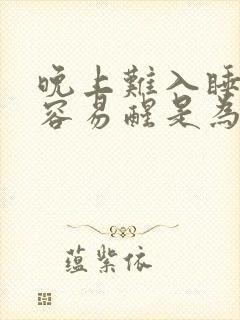 晚上難入睡
容易醒是為
蕴紫依